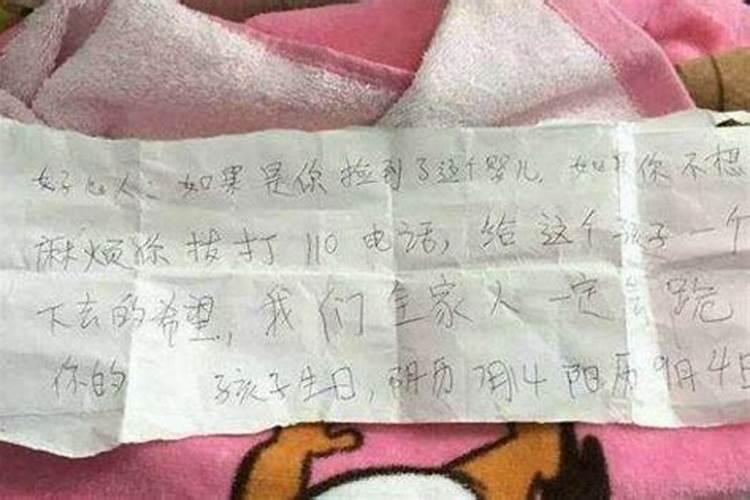 好心人：如果是你捡到了这个婴儿，如果你不想
麻烦你拨打110电话，给这个孩子一个
下去的希望，我们全家人一定会跪
你的 孩子生日，阴历 阳历9月4日